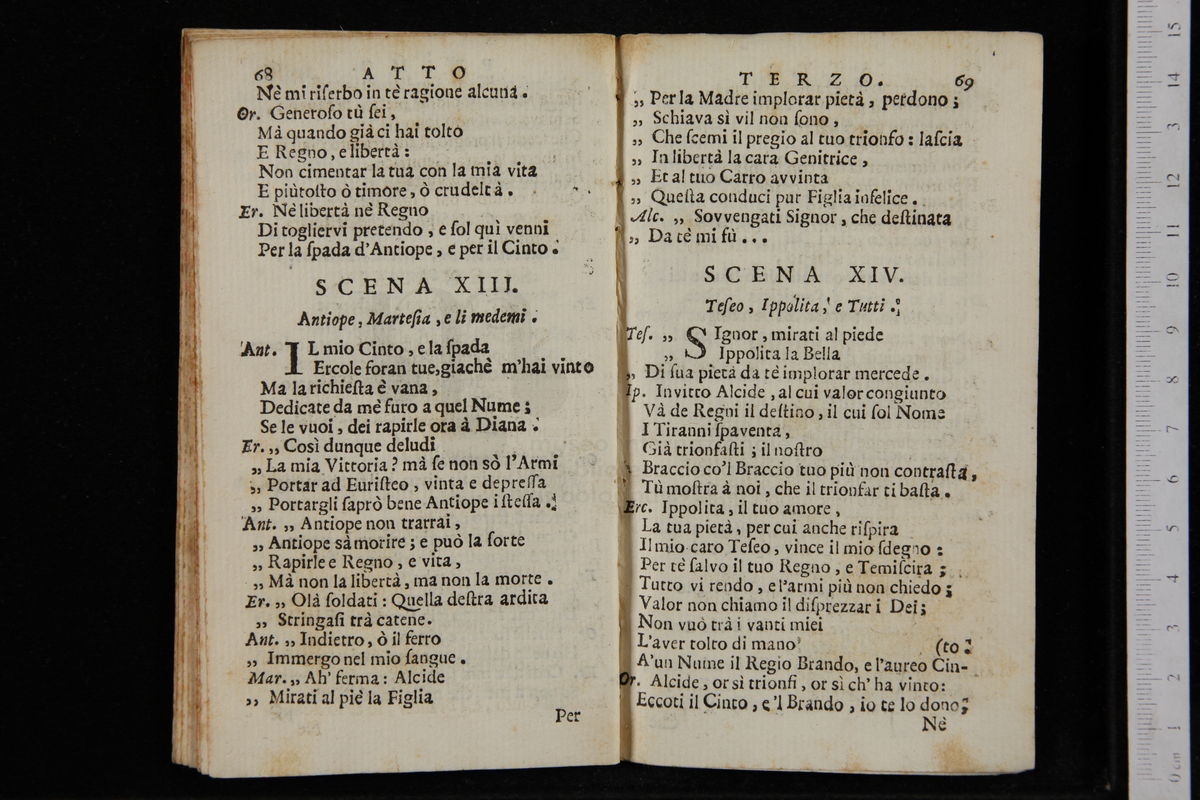 68 ATTO
Nè mi riſerbo in tè ragione alcuna.
Or. Generoſo tù ſei,
Mà quando già ci hai tolto
E Regno, e libertà:
Non cimentar la tua con la mia vita
E piùtoſto ò timore, ò crudeltà.
Er. Nè libertà nè Regno
Di togliervi pretendo, e ſol quì venni
Per la ſpada d'Antiope, e per il Cinto.
SCENA XIII.
Antiope, Marteſia, e li medemi.
Ant. IL mio Cinto, e la ſpada
Ercole foran tue, giachè m'hai vinto
Ma la richieſta è vana,
Dedicate da mè furo a quel Nume;
Se le vuoi, dei rapirle ora à Diana.
Er. „ Così dunque deludi
„ La mia Vittoria? mà ſe non sò l'Armi
„ Portar ad Euriſteo, vinta e depreſſa
„ Portargli ſaprò bene Antiope iſteſſa.
Ant. „ Antiope non trarrai,
„ Antiope sà morire; e può la ſorte
„ Rapirle e Regno, e vita,
„ Mà non la libertà, ma non la morte.
Er. „ Olà ſoldati: Quella deſtra ardita
„ Stringaſi trà catene.
Ant. „ Indietro, ò il ferro
„ Immergo nel mio ſangue.
Mar. „ Ah' ferma: Alcide
„ Mirati al piè la Figlia
Per
TERZO. 69
„ Per la Madre implorar pietà, perdono;
„ Schiava sì vil non ſono,
„ Che ſcemi il pregio al tuo trionfo: laſcia
„ In libertà la cara Genitrice,
„ Et al tuo Carro avvinta
„ Queſta conduci pur Figlia infelice.
Alc. „ Sovvengati Signor, che deſtinata
„ Da tè mi fù...
SCENA XIV.
Teſeo, Ippolita, e Tutti.
Teſ. „ SIgnor, mirati al piede
„ Ippolita la Bella
„ Di ſua pietà da tè implorar mercede.
Ip. Invitto Alcide, al cui valor congiunto
Và de Regni il deſtino, il cui ſol Nome
I Tiranni ſpaventa,
Già trionfaſti; il noſtro
Braccio co'l Braccio tuo più non contraſta,
Tù moſtra à noi, che il trionfar ti baſta.
Erc. Ippolita, il tuo amore,
La tua pietà, per cui anche riſpira
Il mio caro Teſeo, vince il mio ſdegno:
Per tè ſalvo il tuo Regno, e Temiſcira;
Tutto vi rendo, e l'armi più non chiedo;
Valor non chiamo il diſprezzar i Dei;
Non vuò trà i vanti miei
L'aver tolto di mano (to:
A'un Nume il Regio Brando, e l'aureo Cin-
Or. Alcide, or sì trionfi, or sì ch'ha vinto:
Eccoti il Cinto, e'l Brando, io te lo dono;
Nè
0 cm 1 2 3 4 5 6 7 8 9 10 11 12 13 14 15